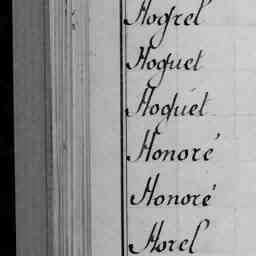 Hogrel
Hoguet
Hoguet
Honoré
Honoré
Horel